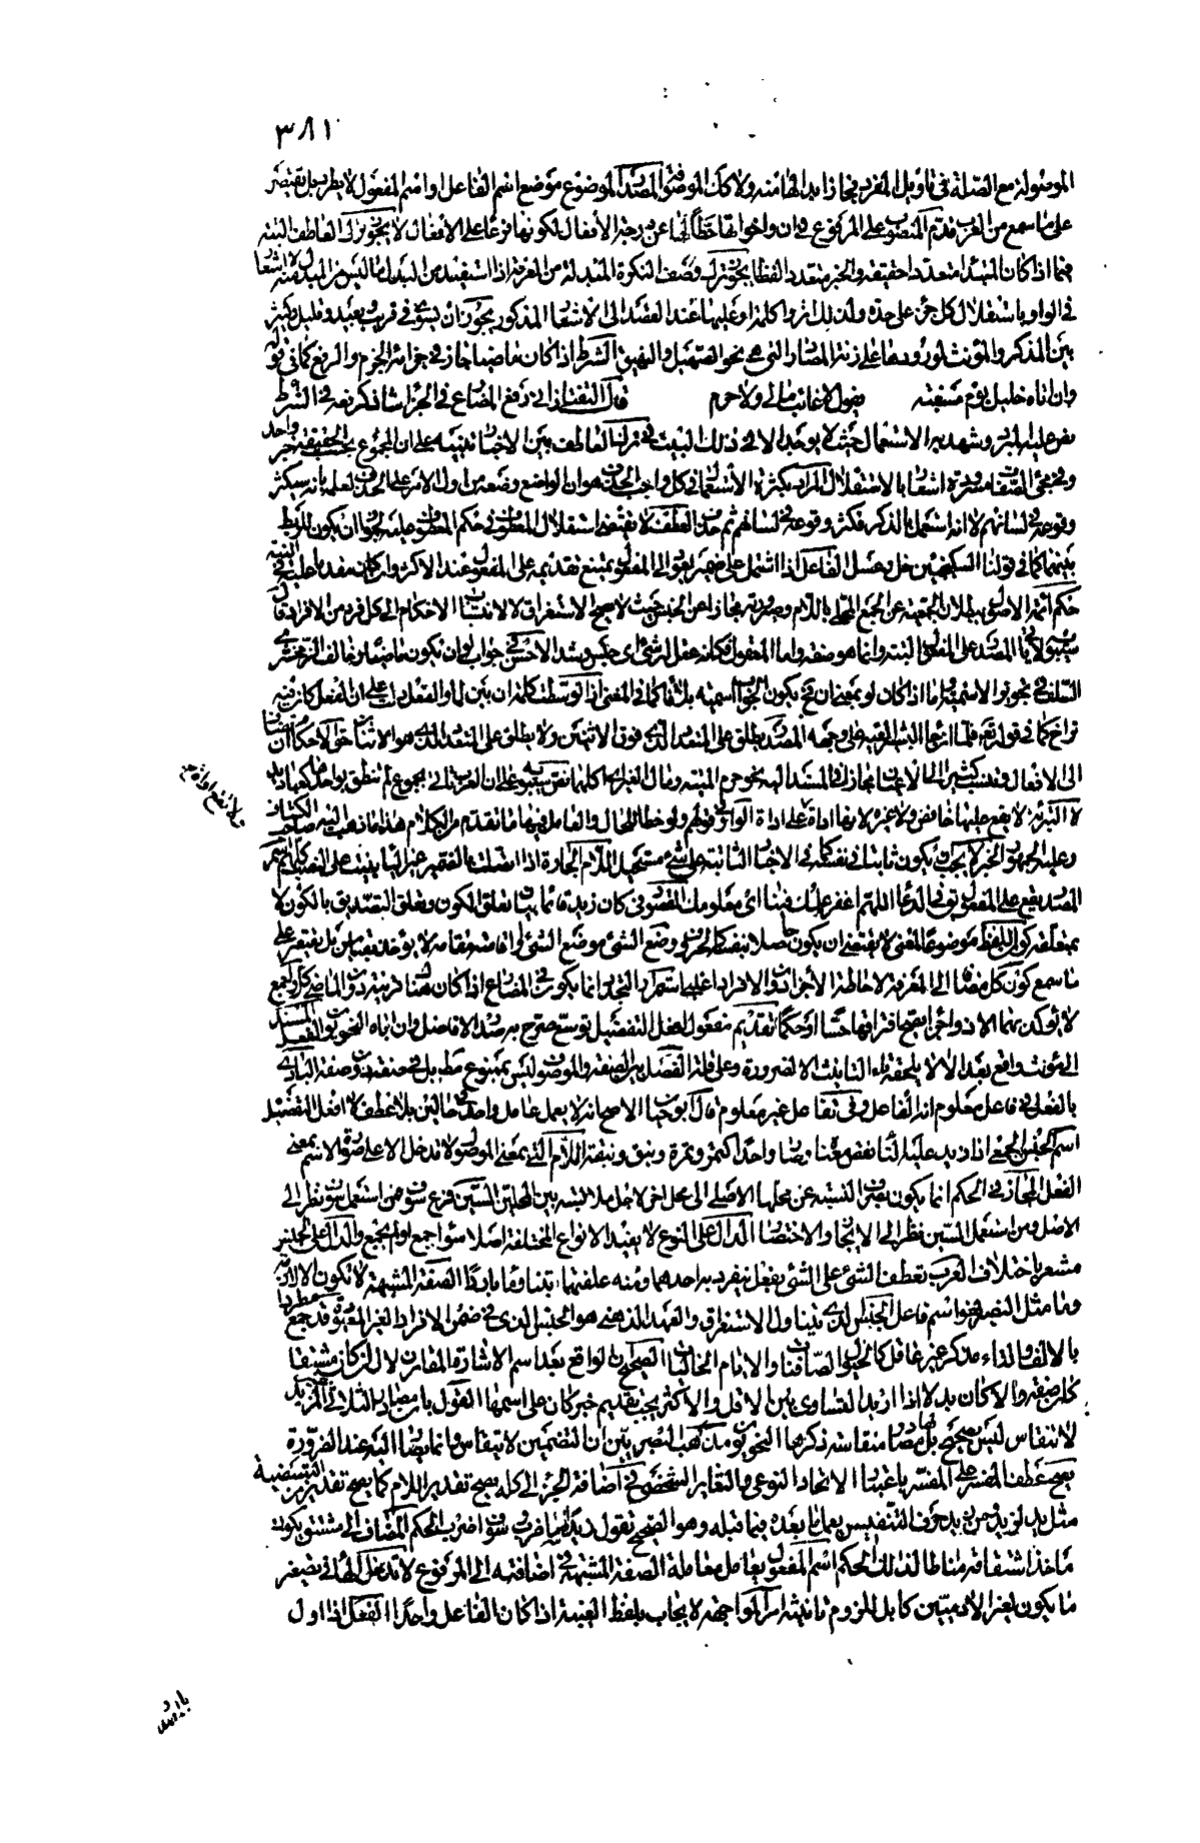 ٣٨١
الموصولة مع الصلة في تأويل المفرد فجاز ابدالها منه ولا كذلك الموصوف المصدر الموضوع موضع اسم الفاعل او اسم المفعول لا يطرد بل يقتصر
على ما سمع من العرب قدم المنصوب على المرفوع في ان واخواتها حطا لها عن درجة الأفعال لكونها فرعا على الافعال لا يجوز ترك العاطف البتة
فيما اذا كان المبتدا متعددا حقيقة والخبر متعدد لفظا يجوز ترك وصف النكرة المبدلة من المعرفة اذا استفيد من البدل ما ليس في المبدل منه لاشعار
في الواو باستقلال كل جزء على حدة ولذلك اثروا كلمة او عليها عند القصد الى الاشعار المذكور يجوز ان يسوى في قريب وبعيد وقليل وكثير
بين المذكر والمؤنث لورودها على زنة المصادر التي هي نحو الصهيل والنهيق الشرط اذا كان ماضيا جاز في جزائه الجزم والرفع كما في قوله
وان اتاه خليل يوم مسغبة يقول لا غائب مالي ولا حرم قال التفتازاني رفع المضارع في الجزاء شاذ كرفعه في الشرط
نص عليه المبرد وشهد به الاستعمال حيث لا يوجد الا في ذلك البيت في ترك العاطف بين الاخبار تنبيه على ان المجموع بحسب الحقيقة خبر واحد
وفي مجئ الصفات مسرودة اشعار بالاستقلال المراد بكثرة الاستعمال في كل واجب الحذف هو ان الواضع وضعه من اول الامر على الحذف لعلمه بانه سيكثر
وقوعه في لسانهم لا انه استعمل بالذكر فكثر وقوعه في لسانهم ثم حذف العطف لا يقتضي استقلال المعطوف في حكم المعطوف عليه لجواز ان يكون للربط
بينهما كما في قولنا السكنجبين خل وعسل الفاعل اذا اشتمل على ضمير يعود الى المفعول يمتنع تقديمه على المفعول عند الاكثر وان كان مقدما عليه في النية
حكم ائمة الاصول ببطلان الجمعية عن الجمع المحلى باللام وصيرورته مجازا عن الجنس حيث لا يصح الاستغراق لا لانتساب الاحكام الى كل فرد من الافراد قال
سيبويه لا يأتي المصدر على المفعول البتة وانما هو صفة واما المعقول فكانه عقل له شئ اى حبس وشد الاحسن في جواب لو ان يكون ماضيا وخالف الزمخشري
السلف في تجويز الاسمية اما اذا كان لو بمعنى ان فح يكون الجواب اسمية بلا فاء كما في المغني اذا توسطت كلمة ان بين لما والفعل دلت على ان الفعل كان فيه
تراخ كما في قوله تعالى فلما ان جاء البشير القيه على وجهه المصدر يطلق على المتعدد الذي فوق الاثنين ولا يطلق على المتعدد الذي هو الاثنان
الى الافعال ونسب كثير الى الاعيان مجاز في المسند اليه نحو حرم الميتة وقال الفراء كلها نص سيبويه على ان العرب
لا التبرئة لا يقع عليها خافض ولا غيره لانها اداة على اداة
وعليه الجمهور الخبر لا يجب ان يكون ثابتا في نفسه كما في الاخبار الثابتة على شئ مستحيل اللام الجارة اذا اتصلت بالضمير غير الياء بنيت على الفتح كما هم
المصدر يقع على المفعول تقول في الدعاء اللهم اغفر علمك فينا اى معلومك المقصود في كان زيد قائما بيان تعلق الكون وتعلق التصديق بالكون لا
بمتعلقه كون اللفظ موضوعا لمعنى لا يقتضي ان يكون حاصلا بنفسه كالحرف وضع الشئ موضع الشئ او اقامته مقامه لا يؤخذ بقياس بل يقتصر على
ما سمع كون كل مضافا الى المعرفة لاحاطة الاجزاء والافراد اغلبى استمرار التجدد انما يكون في المضارع اذا كان هناك قرينة دون الماضي كل واجمع
لا يؤكد بهما الا ذو اجزاء يصح افتراقها حسا او حكما تقديم مفعول افعل التفضيل توسع صرح به صدر الافاضل وان اباه النحويون الفعل المسند
الى مؤنث واقع بعد الا لا يلحقه تاء التأنيث الا لضرورة وعلى قلة الفصل بين الصفة والموصوف ليس بممنوع مطلقا بل في صفة دون صفة البادى
بالفعل في فاعل معلوم انه الفاعل وفي تفاعل غير معلوم قال ابو حيان الاصح انه لا يعمل عامل واحد في حالين بلا عطف الا افعل التفضيل
اسم الجنس الجمعي اذا زيد عليه التاء نقص معناه وصار واحدا كتمر وتمرة ونبق ونبقة اللام التي بمعنى الموصول لا تدخل الا على صورة الاسم بمعنى
الفعل المجاز في الحكم انما يكون بصرف النسبة عن محلها الاصلي الى محل آخر لاجل ملابسة بين المحلين السين فرع سوف فمن استعمل سوف نظر الى
الاصل ومن استعمل السين نظر الى الايجاز والاختصار الدال على النوع لا يفيد الانواع المختلفة اصلا سواء جمع او لم يجمع والدال على الجنس
مشعر باختلاف العرب تعطف الشئ على الشئ بفعل ينفرد به احدهما ومنه علفتها تبنا وماء باردا الصفة المشبهة لا تكون الا لازمة
واما مثل النصير فهو اسم فاعل الجنس الذي يتناول الاستغراق والعهد الذهني هو الجنس الذي في ضمن الافراد الغير المعينة قد جمع مطردا
بالالف والتاء مذكر غير عاقل كالخيول الصافنات والايام الخاليات الصحيح ان الواقع بعد اسم الاشارة المقارن لال ان كان مشتقا
كان صفة والا كان بدلا اذا اريد التساوي بين الاقل والاكثر يجب تقديم خبر كان على اسمها القول بان مصادر الثلاثي المزيد
لا تنقاس ليس بصحيح بل لها مصادر منقاسة ذكرها النحويون مذهب البصريين ان التضمين لا ينقاس وانما يصار اليه عند الضرورة
يصح عطف المفسر على المفسر باعتبار الاتحاد النوعي والتغاير الشخصي في اضافة الجزء الى كله يصح تقدير اللام كما يصح تقدير من التبعيضية
مثل يد لزيد ومن زيد حرف التنفيس يعمل ما بعده فيما قبله وهو الصحيح تقول زيدا سوف اضرب الحكم المضاف الى مشتق يكون
ماخذ اشتقاقه مناطا لذلك الحكم اسم المفعول يعامل معاملة الصفة المشبهة في اضافته الى المرفوع لا تدخل الهاء في تصغير
ما يكون لغير الآدميين كابل للزوم تانيثه امر المواجهة لا يجاب بلفظ الغيبة اذا كان الفاعل واحدا الفعل اذا اول